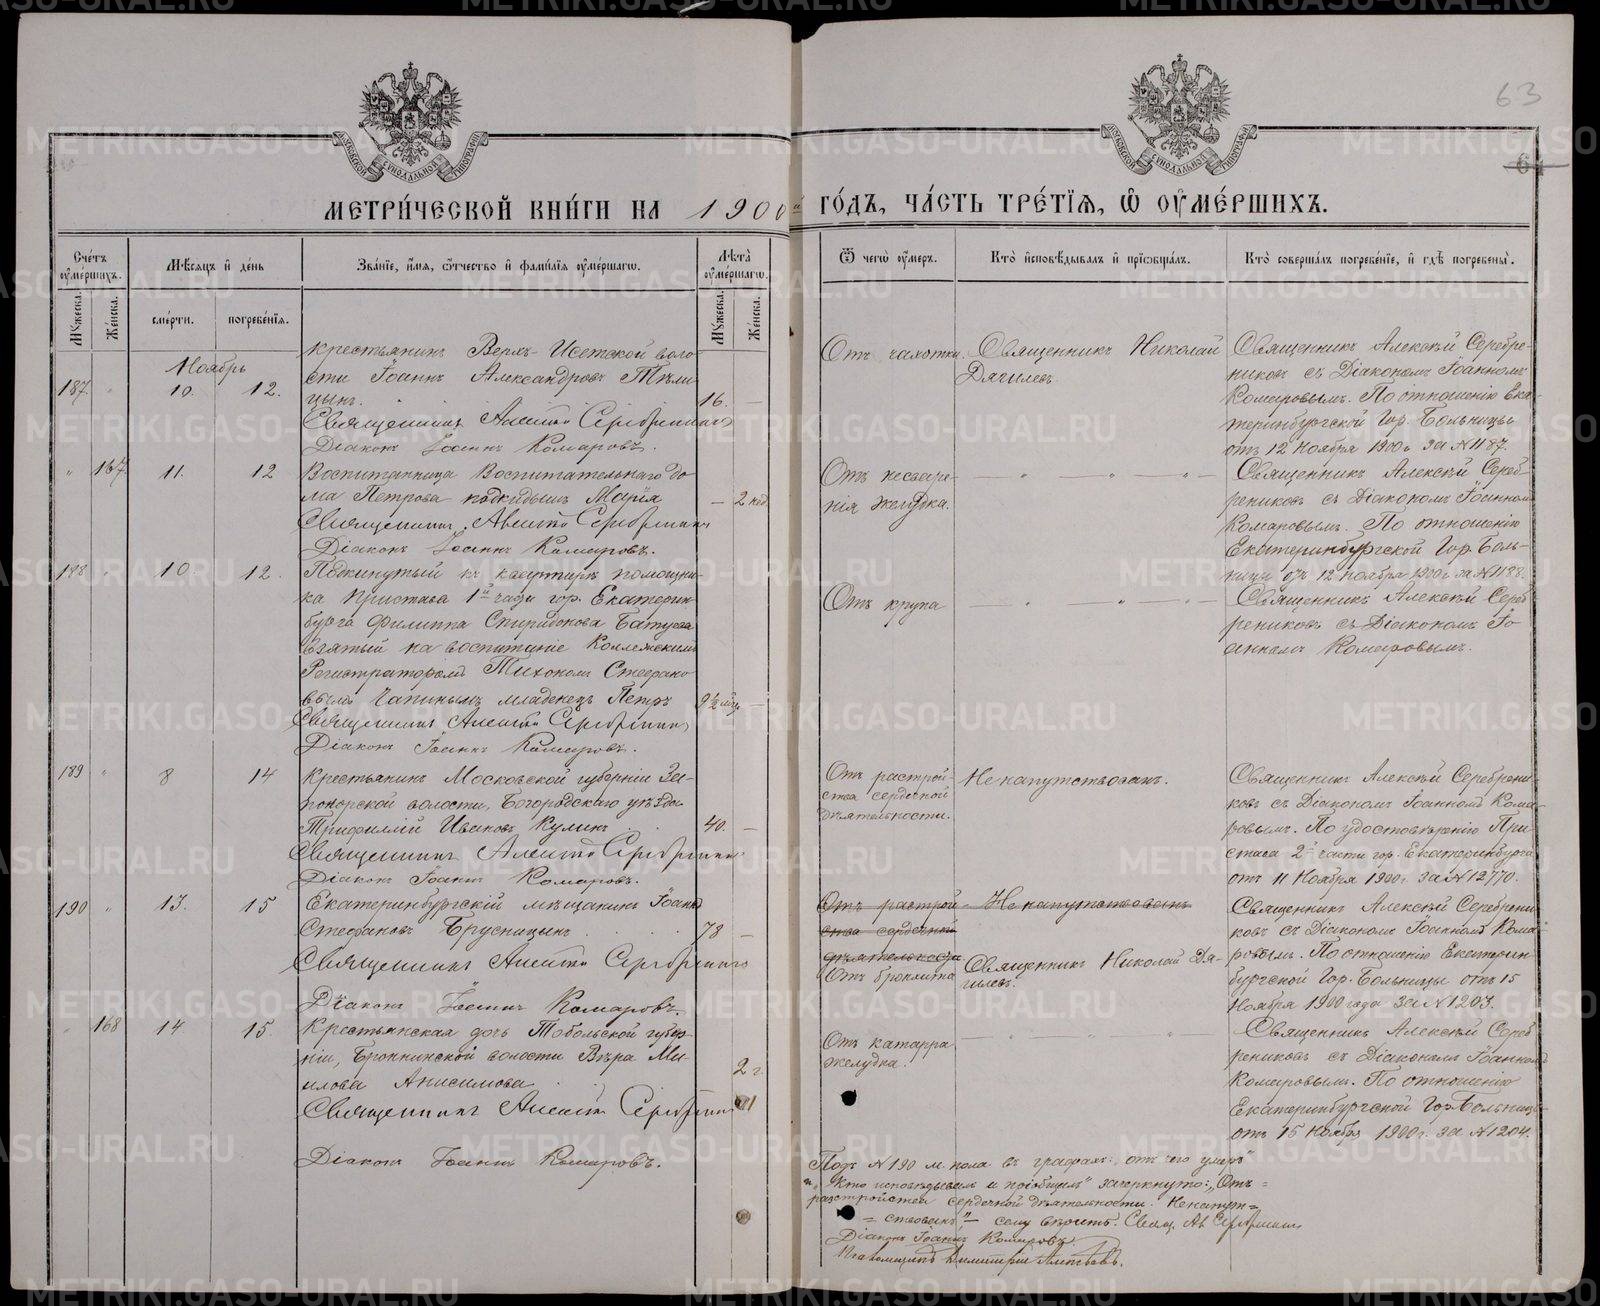 63
64
МЕТРИ́ЧЕСКОЙ КНИ́ГИ НА 1900й ГО́ДЪ, ЧА́СТЬ ТРЕ́ТІѦ, Ѿ ОУ҆МЕ́РШИХЪ.
Сче́тъ оу҆ме́ршихъ.
Мꙋ́жеска.
Же́нска.
Мѣ́сѧцъ и҆ де́нь
сме́рти.
погребе́нїѧ.
Зва́нїе, и҆́мѧ, ѻ҆́тчество и҆ фами́лїѧ оу҆ме́ршагѡ.
Лѣ́та оу҆ме́ршагѡ.
Мꙋ́жеска.
Же́нска.
Ѿ чегѡ̀ оу҆́меръ.
Кто̀ и҆сповѣ́дывалъ и҆ прїѡбща́лъ.
Кто̀ соверша́лъ погребе́нїе, и҆ гдѣ̀ погребены̀.
Ноябрь
187. " 10. 12.
Крестьянинъ Верхъ-Исетской воло-
сти Іоаннъ Александровъ Тѣли-
цынъ. 16. —
Священникъ Алексѣй Серебренниковъ
Діаконъ Іоаннъ Комаровъ.
Отъ чахотки.
Священникъ Николай
Дягилевъ
Священникъ Алексѣй Серебре-
никовъ съ Діакономъ Іоанномъ
Комаровымъ. По отношенію Ека-
теринбургской Гор. Больницы
отъ 12 Ноября 1900 г за №1187.
" 167. 11. 12
Воспитанница Воспитательнаго до
ма Петрова подкидышъ Марія — 2 нед.
Священникъ Алексѣй Серебренниковъ
Діаконъ Іоаннъ Комаровъ.
Отъ несваре-
нія желудка.
— " — " — " —
Священникъ Алексѣй Сереб-
рениковъ съ Діакономъ Іоанномъ
Комаровымъ. По отношенію
Екатеринбургской Гор. Боль-
ницы отъ 12 ноября 1900 г за №1188.
188 " 10. 12.
Подкинутый къ квартирѣ помощни-
ка Пристава 1й части гор. Екатерин-
бурга Филиппа Спиридонова
взятый на воспитаніе Коллежскимъ
Регистраторомъ Тихономъ Стефано
вымъ Чапинымъ младенецъ Петръ 9½ мѣс. —
Священникъ Алексѣй Серебренниковъ
Діаконъ Іоаннъ Комаровъ.
Отъ крупа
— " — " — " —
Священникъ Алексѣй Сереб
рениковъ съ Діакономъ Іо
анномъ Комаровымъ.
189 " 8 14
Крестьянинъ Московской губерніи За-
понорской волости, Богородскаго уѣзда
Трифиллій Ивановъ Кулинъ . . 40. —
Священникъ Алексѣй Серебренниковъ
Діаконъ Іоаннъ Комаровъ.
Отъ растрой-
ства сердечной
дѣятельности.
Ненапутствованъ.
Священникъ Алексѣй Серебрени-
ковъ съ Діакономъ Іоанномъ Кома-
ровымъ. По удостовѣренію При-
става 2й части гор. Екатеринбурга
отъ 11 Ноября 1900 г. за №12770.
190 " 13. 15
Екатеринбургскій мѣщанинъ Іоаннъ
Стефановъ Брусницынъ . . . . 78 —
Священникъ Алексѣй Серебренниковъ
Діаконъ Іоаннъ Комаровъ.
Отъ растрой-
ства сердечной
дѣятельности
Отъ бронхита
Ненапутствованъ
Священникъ Николай Дя-
гилевъ.
Священникъ Алексѣй Серебрени
ковъ съ Діакономъ Іоанномъ Кома-
ровымъ. По отношенію Екатерин-
бургской Гор. Больницы отъ 15
Ноября 1900 года за №1203.
" 168 14 15.
Крестьянская дочь Тобольской губер-
ніи, Бронниковской волости Вѣра Ми-
илова Анисимова . . 2 г.
Священникъ Алексѣй Серебренниковъ
Діаконъ Іоаннъ Комаровъ.
Отъ катарра
желудка.
— " — " — " —
Священникъ Алексѣй Сереб
рениковъ съ Діакономъ Іоанномъ
Комаровымъ. По отношенію
Екатеринбургской Гор. Больницы
отъ 15 Ноября 1900 г. за №1204.
Подъ №190 м. пола въ графахъ: „отъ чего умеръ"
и „Кто исповѣдывалъ и пріобщалъ" зачеркнуто: „Отъ=
разстройства сердечной дѣятельности. Ненапут=
=ствованъ" — сему вѣрить. Свящ. Ал. Серебренниковъ
Діаконъ Іоаннъ Комаровъ.
Псаломщикъ Димитрій
METRIKI.GASO-URAL.RU